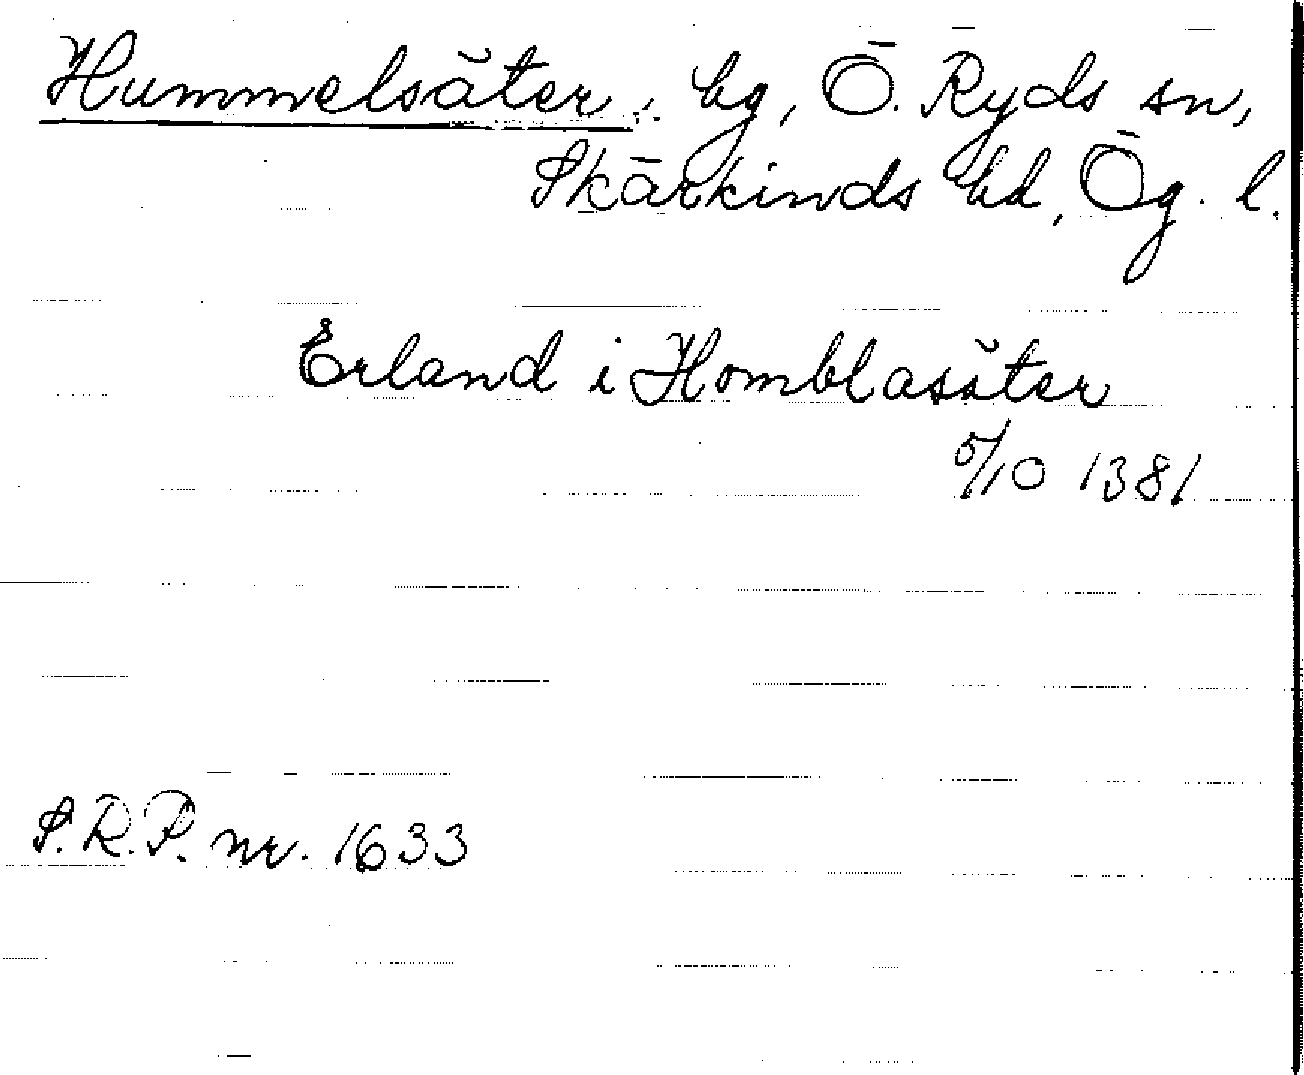 Hummelsäter, by, Ö. Ryds sn,
Skärkinds hd, Ög. l.
Erland i Homblasäter
5/10 1381
S.R.P. nr. 1633